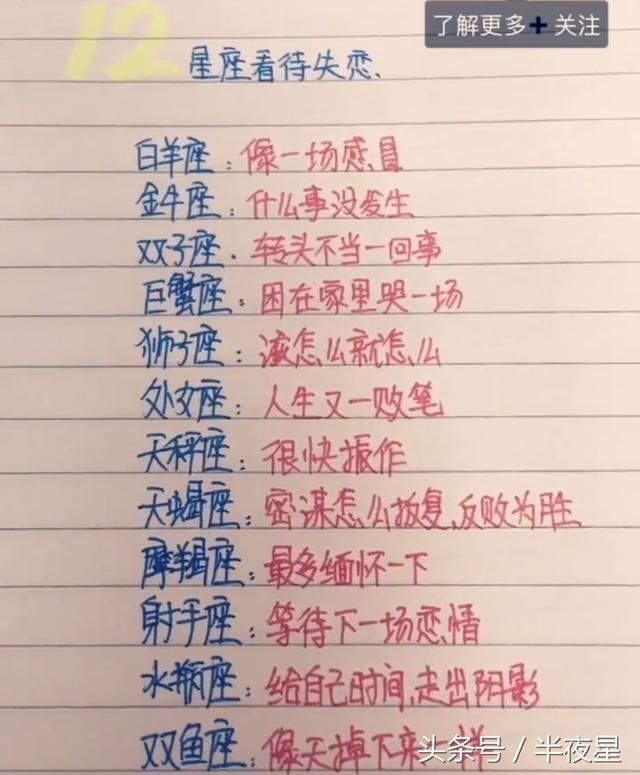 了解更多+关注
12
星座看待失恋.
白羊座：像一场感冒
金牛座：什么事没发生
双子座.转头不当一回事
巨蟹座：困在家里哭一场
狮子座：该怎么就怎么
处女座：人生又一败笔
天秤座：很快振作
天蝎座：密谋怎么报复,反败为胜
摩羯座：最多缅怀一下
射手座：等待下一场恋情
水瓶座：给自己时间,走出阴影
双鱼座：像天掉下来一样
头条号/半夜星